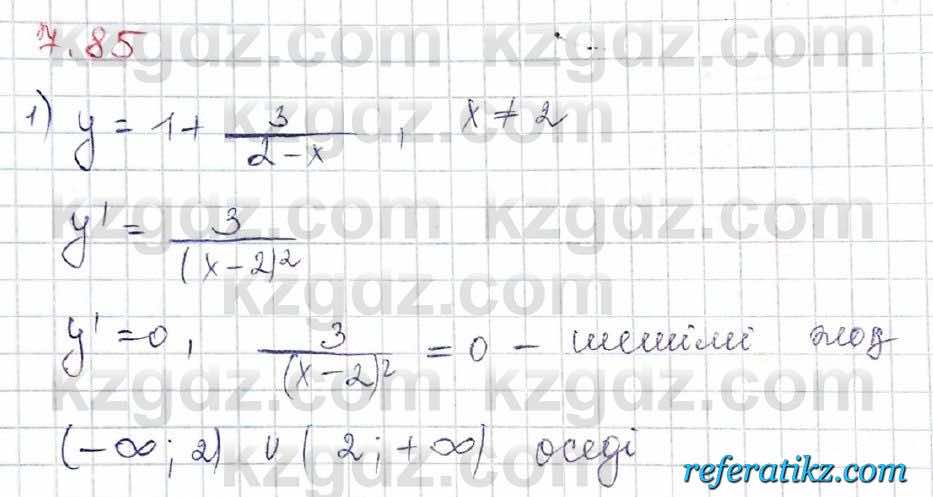 7.85
1) y = 1 + 3/(2 - x), x ≠ 2
y' = 3/(x - 2)²
y' = 0, 3/(x - 2)² = 0 - шешімі жоқ
(-∞; 2) ∪ (2; +∞) өседі
kzgdz.com kzgdz.com
kzgdz.com
kzgdz.com kzgdz.com
kzgdz.com
kzgdz.com kzgdz.com
kzgdz.com
referatikz.com